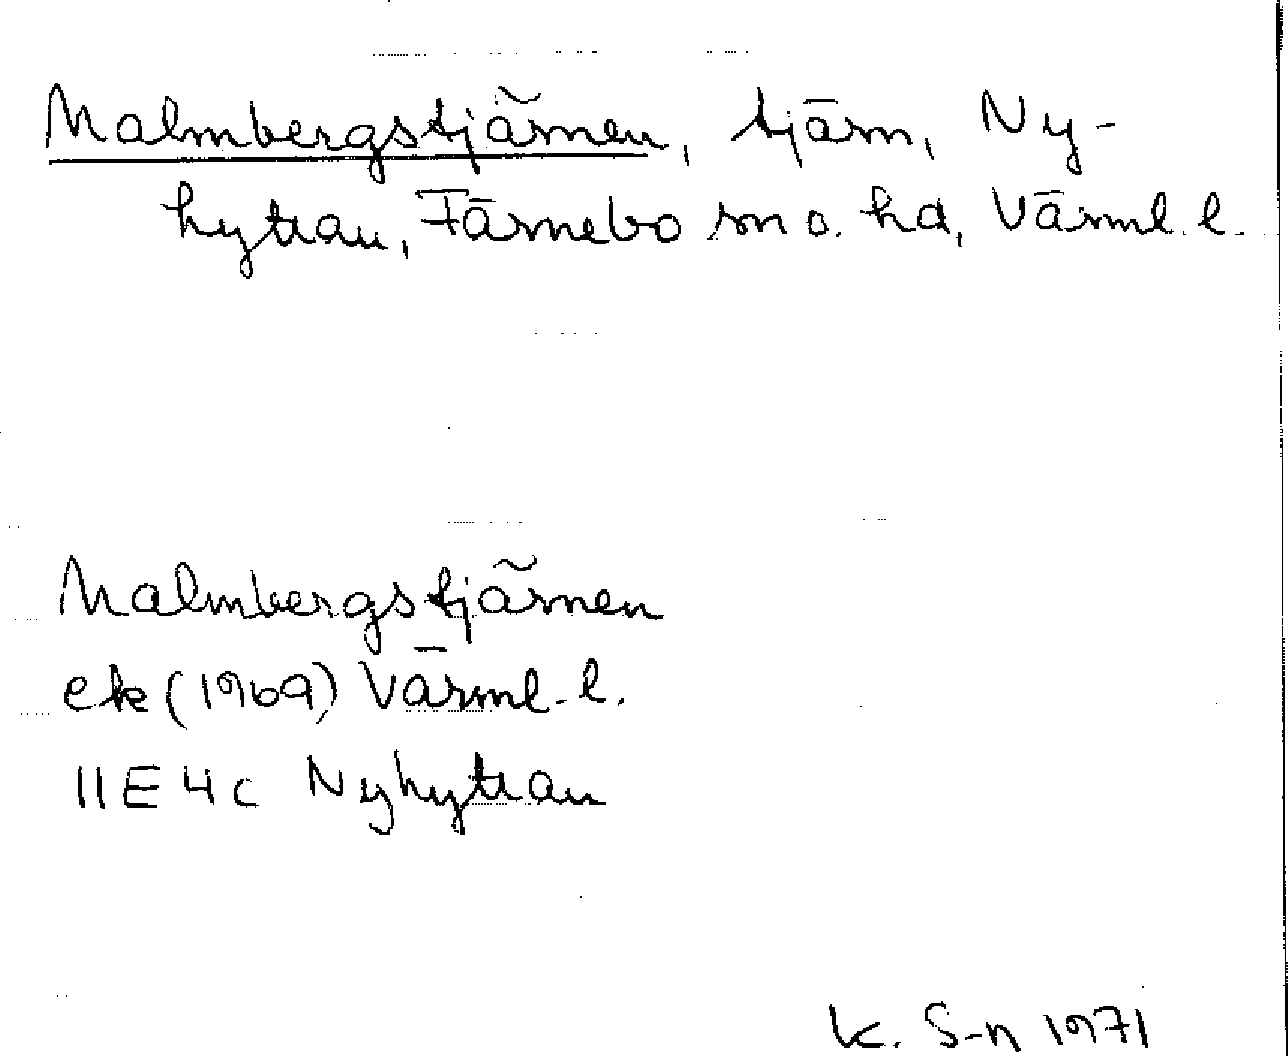 Malmbergstjärnen, tjärn, Ny-
hyttan, Färnebo sn o. hd, Värml. l.
Malmbergstjärnen
ek (1969) Värml. l.
11E 4c Nyhyttan
K. S-n 1971